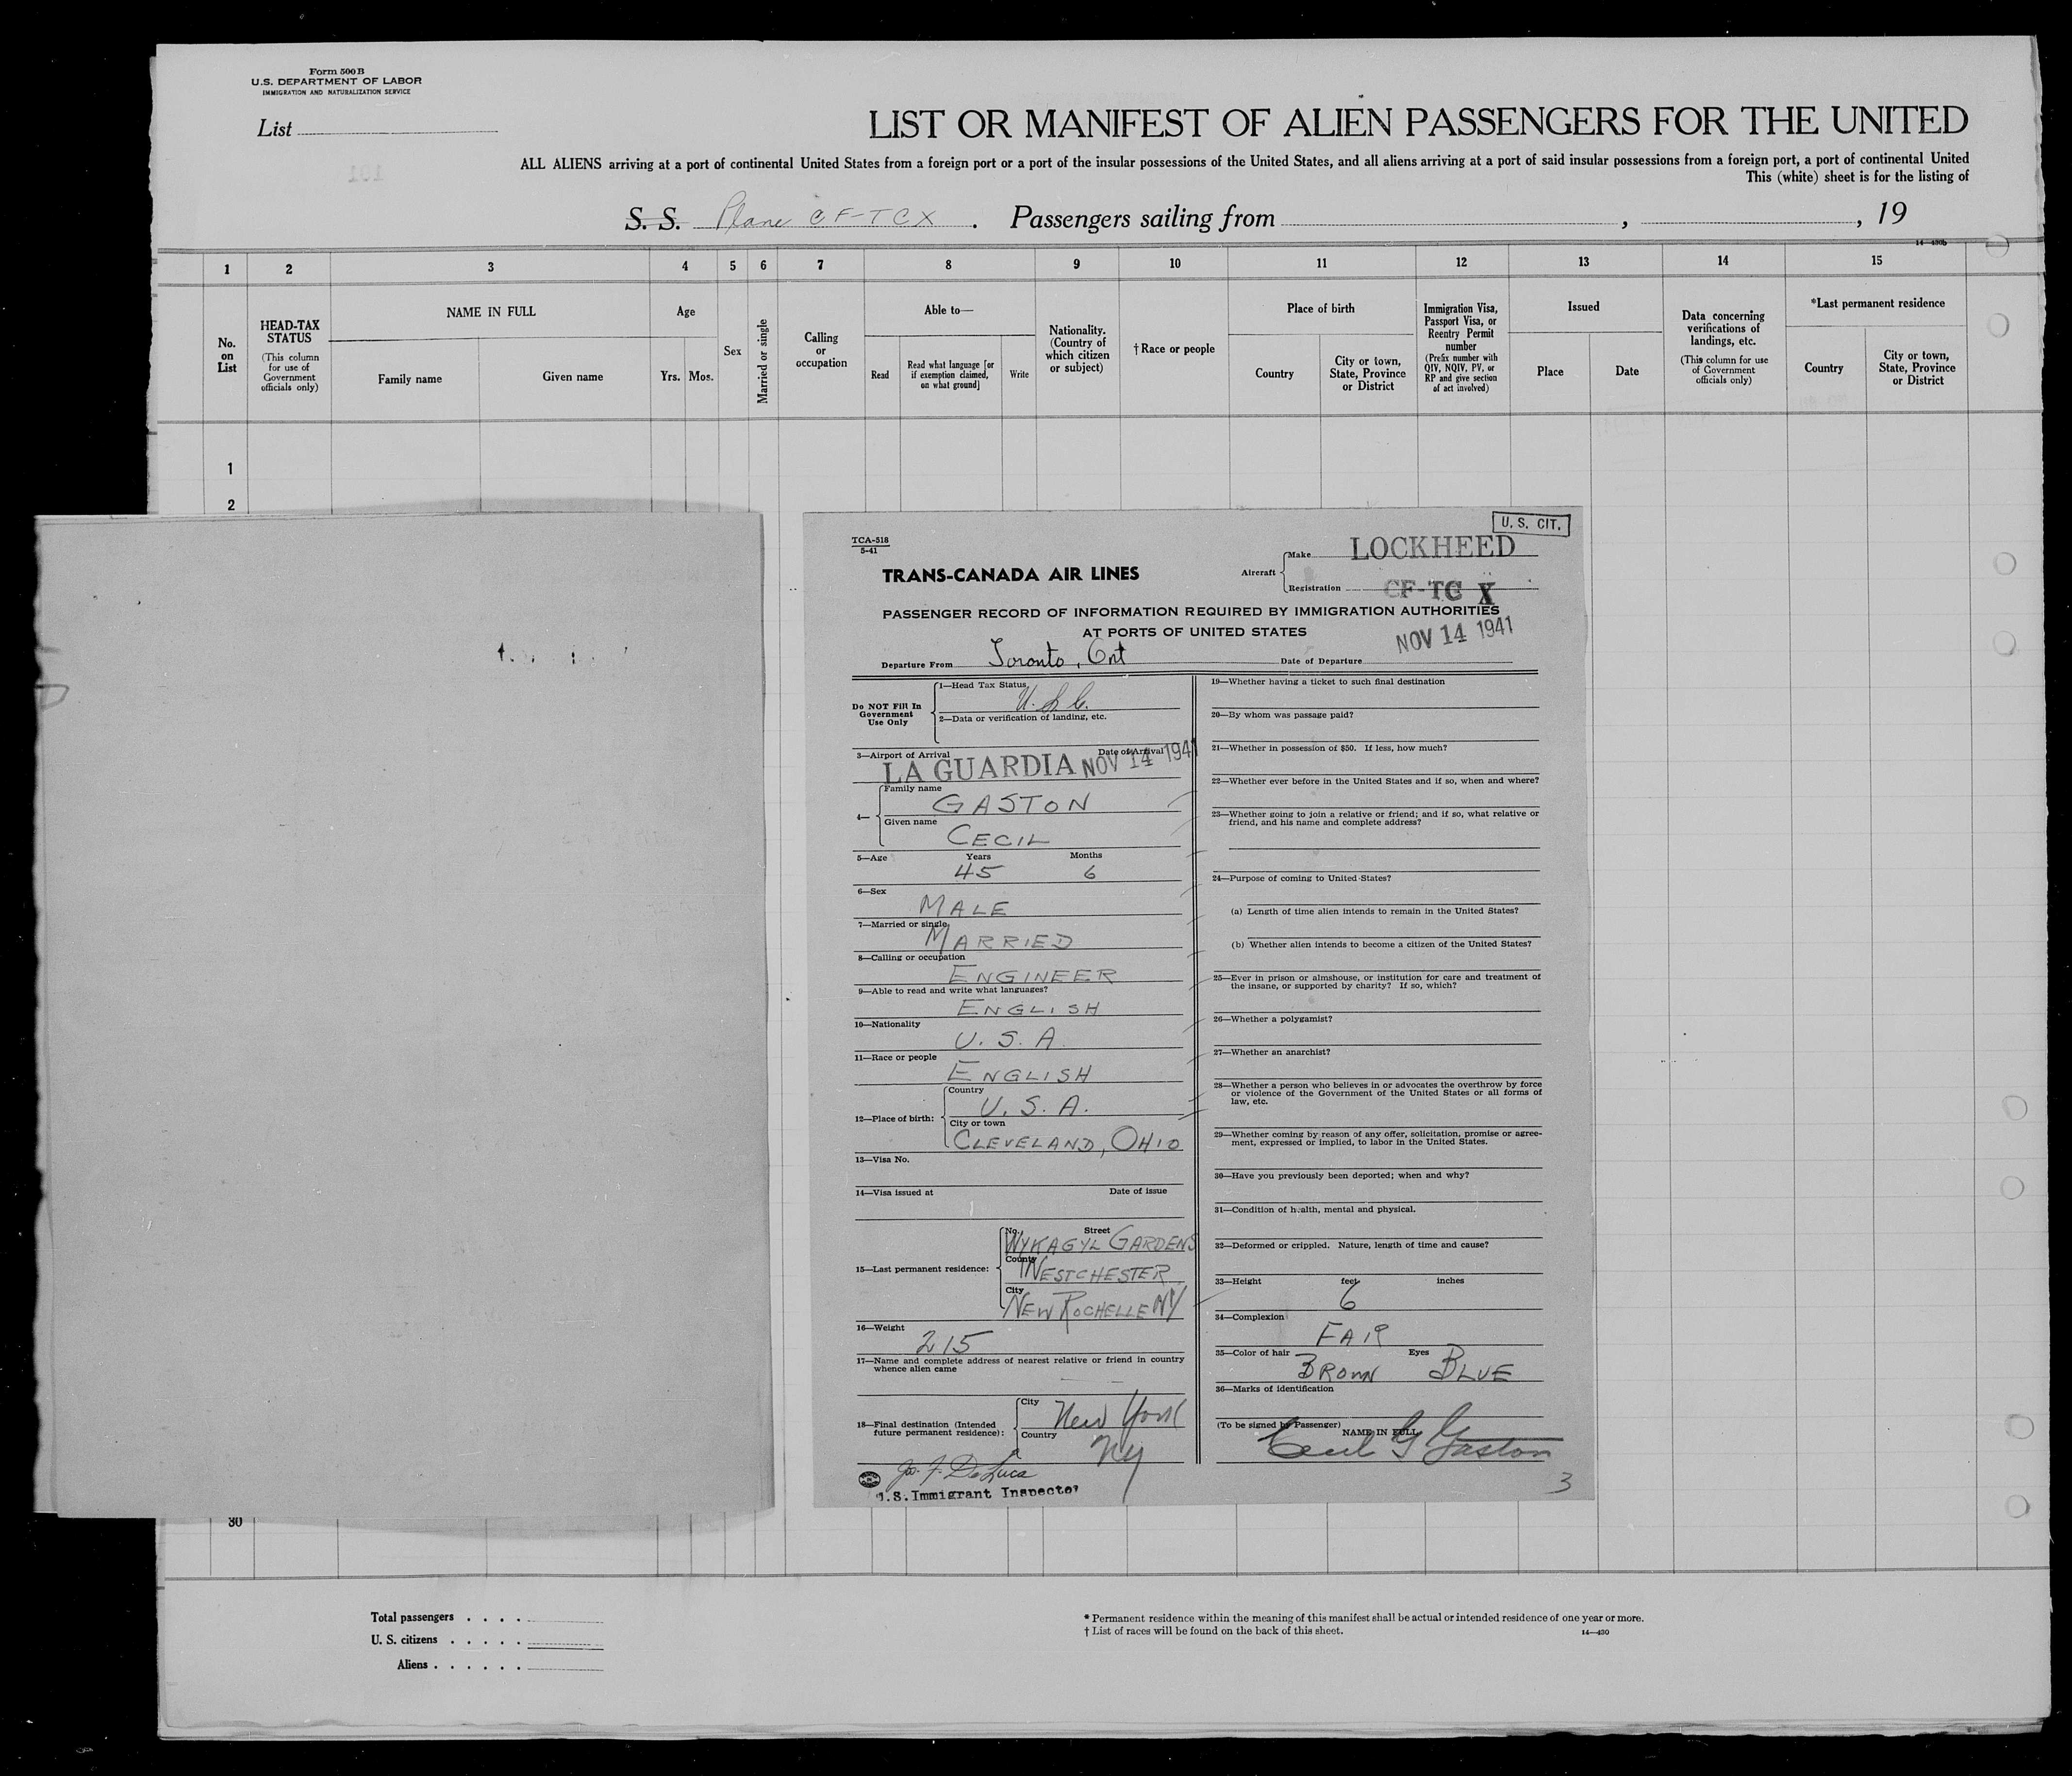 Form 500 B
U.S. DEPARTMENT OF LABOR
IMMIGRATION AND NATURALIZATION SERVICE
List
LIST OR MANIFEST OF ALIEN PASSENGERS FOR THE UNITED
ALL ALIENS arriving at a port of continental United States from a foreign port or a port of the insular possessions of the United States, and all aliens arriving at a port of said insular possessions from a foreign port, a port of continental United
This (white) sheet is for the listing of
S. S. Plane CF-TCX . Passengers sailing from , , 19
14—430b
1 2 3 4 5 6 7 8 9 10 11 12 13 14 15
No. on List
HEAD-TAX STATUS
(This column for use of Government officials only)
NAME IN FULL
Family name
Given name
Age
Yrs. Mos.
Sex
Married or single
Calling or occupation
Able to—
Read
Read what language [or if exemption claimed, on what ground]
Write
Nationality. (Country of which citizen or subject)
† Race or people
Place of birth
Country
City or town, State, Province or District
Immigration Visa, Passport Visa, or Reentry Permit number
(Prefix number with QIV, NQIV, PV, or RP and give section of act involved)
Issued
Place
Date
Data concerning verifications of landings, etc.
(This column for use of Government officials only)
*Last permanent residence
Country
City or town, State, Province or District
1
2
U. S. CIT.
TCA-518
5-41
TRANS-CANADA AIR LINES
Aircraft
Make LOCKHEED
Registration CF-TC X
PASSENGER RECORD OF INFORMATION REQUIRED BY IMMIGRATION AUTHORITIES
AT PORTS OF UNITED STATES
NOV 14 1941
Departure From Toronto, Ont Date of Departure
Do NOT Fill In Government Use Only
1—Head Tax Status
U.S.C.
2—Data or verification of landing, etc.
3—Airport of Arrival Date of Arrival
LA GUARDIA NOV 14 1941
4—
Family name
GASTON
Given name
CECIL
5—Age Years Months
45 6
6—Sex
MALE
7—Married or single
MARRIED
8—Calling or occupation
ENGINEER
9—Able to read and write what languages?
ENGLISH
10—Nationality
U. S. A.
11—Race or people
ENGLISH
12—Place of birth:
Country
U. S. A.
City or town
CLEVELAND, OHIO
13—Visa No.
14—Visa issued at Date of issue
15—Last permanent residence:
No. Street
WYKAGYL GARDENS
County
WESTCHESTER
City
NEW ROCHELLE NY
16—Weight
215
17—Name and complete address of nearest relative or friend in country whence alien came
18—Final destination (Intended future permanent residence):
City
New York
Country
NY
Jos. F. DeLuca
U.S. Immigrant Inspector
19—Whether having a ticket to such final destination
20—By whom was passage paid?
21—Whether in possession of $50. If less, how much?
22—Whether ever before in the United States and if so, when and where?
23—Whether going to join a relative or friend; and if so, what relative or friend, and his name and complete address?
24—Purpose of coming to United States?
(a) Length of time alien intends to remain in the United States?
(b) Whether alien intends to become a citizen of the United States?
25—Ever in prison or almshouse, or institution for care and treatment of the insane, or supported by charity? If so, which?
26—Whether a polygamist?
27—Whether an anarchist?
28—Whether a person who believes in or advocates the overthrow by force or violence of the Government of the United States or all forms of law, etc.
29—Whether coming by reason of any offer, solicitation, promise or agreement, expressed or implied, to labor in the United States.
30—Have you previously been deported; when and why?
31—Condition of health, mental and physical.
32—Deformed or crippled. Nature, length of time and cause?
33—Height feet inches
6
34—Complexion
FAIR
35—Color of hair Eyes
BROWN BLUE
36—Marks of identification
(To be signed by Passenger)
NAME IN FULL
Cecil G Gaston
3
30
Total passengers . . . .
U. S. citizens . . . . .
Aliens . . . . . .
* Permanent residence within the meaning of this manifest shall be actual or intended residence of one year or more.
† List of races will be found on the back of this sheet.
14—430